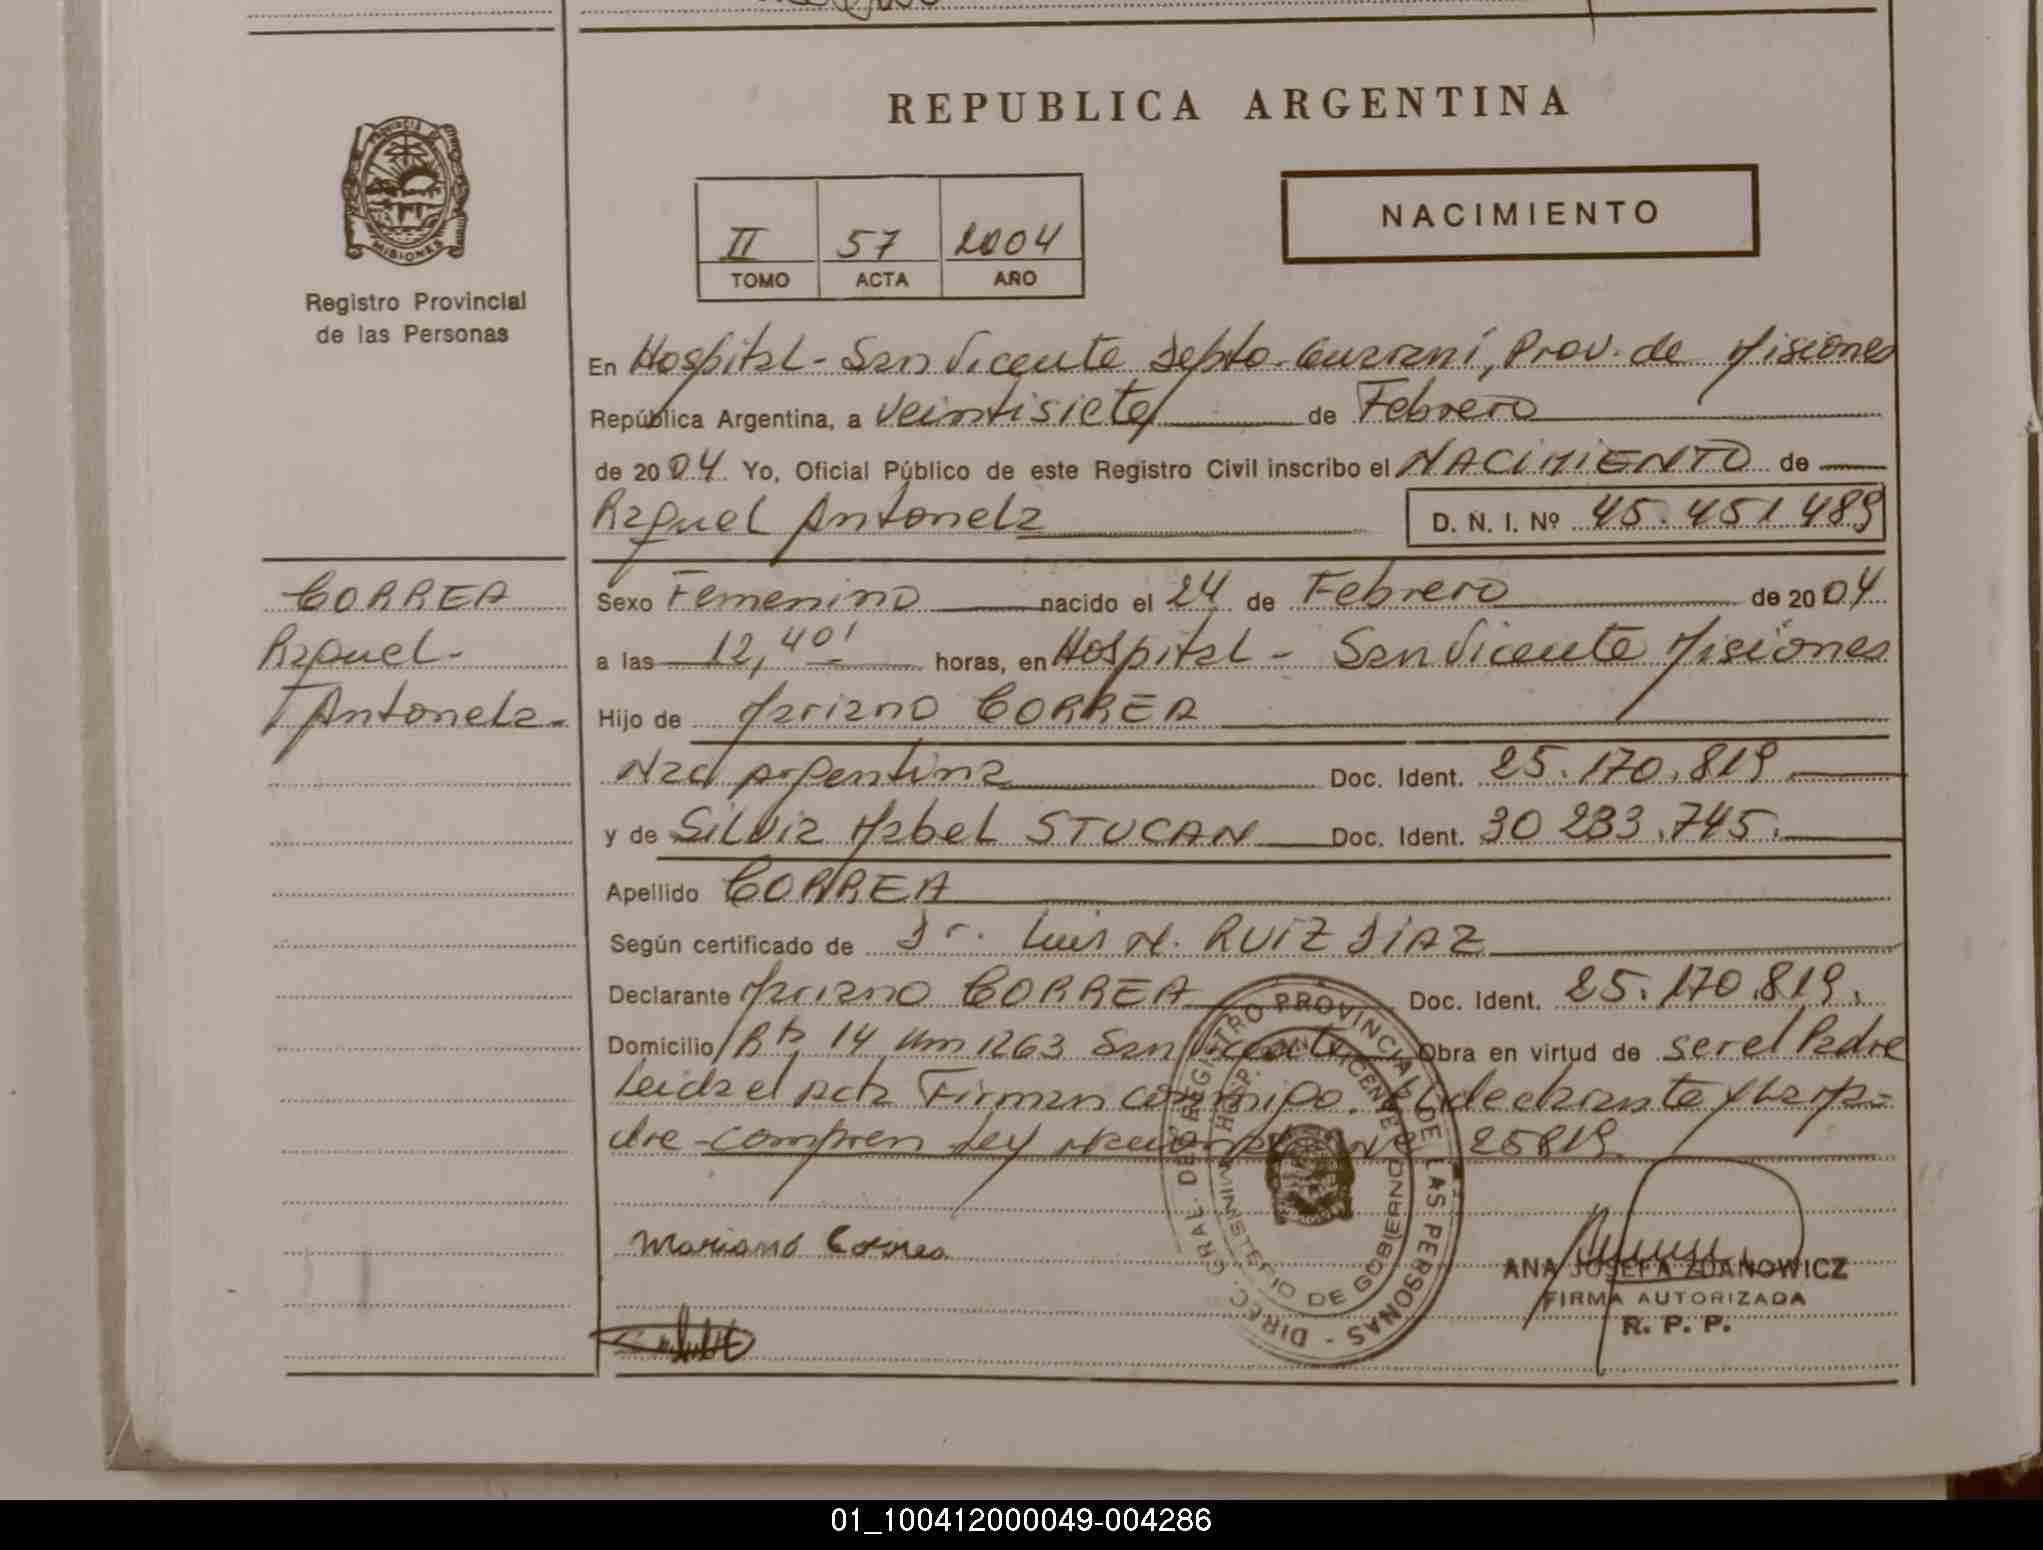 REPUBLICA ARGENTINA
PROVINCIA DE
MISIONES
Registro Provincial
de las Personas
II 57 2004
TOMO ACTA AÑO
NACIMIENTO
En Hospital - San Vicente Depto. Guaraní, Prov. de Misiones
República Argentina, a veintisiete de Febrero
de 2004 Yo, Oficial Público de este Registro Civil inscribo el NACIMIENTO de
Raquel Antonela D. N. I. Nº 45.451.489
CORREA
Raquel -
Antonela -
Sexo Femenino nacido el 24 de Febrero de 2004
a las 12,40' horas, en Hospital - San Vicente Misiones
Hijo de Mariano CORREA
Nac. Argentina Doc. Ident. 25.170.819.
y de Silvia Mabel STUCAN Doc. Ident. 30 233.745.
Apellido CORREA
Según certificado de Dr. Luis M. RUIZ DIAZ
Declarante Mariano CORREA Doc. Ident. 25.170.819.
Domicilio Rta 14 Km 1263 San Vicente Obra en virtud de ser el Padre
Leida el acta Firman conmigo. El declarante y la ma-
dre - Ley Nacional Nº 25819
Mariano Correa
DIREC. GRAL. DE REGISTRO PROVINCIAL DE LAS PERSONAS -
MINISTERIO DE GOBIERNO
HOSP. SAN VICENTE
ANA JOSEFA ZDANOWICZ
FIRMA AUTORIZADA
R. P. P.
01_100412000049-004286